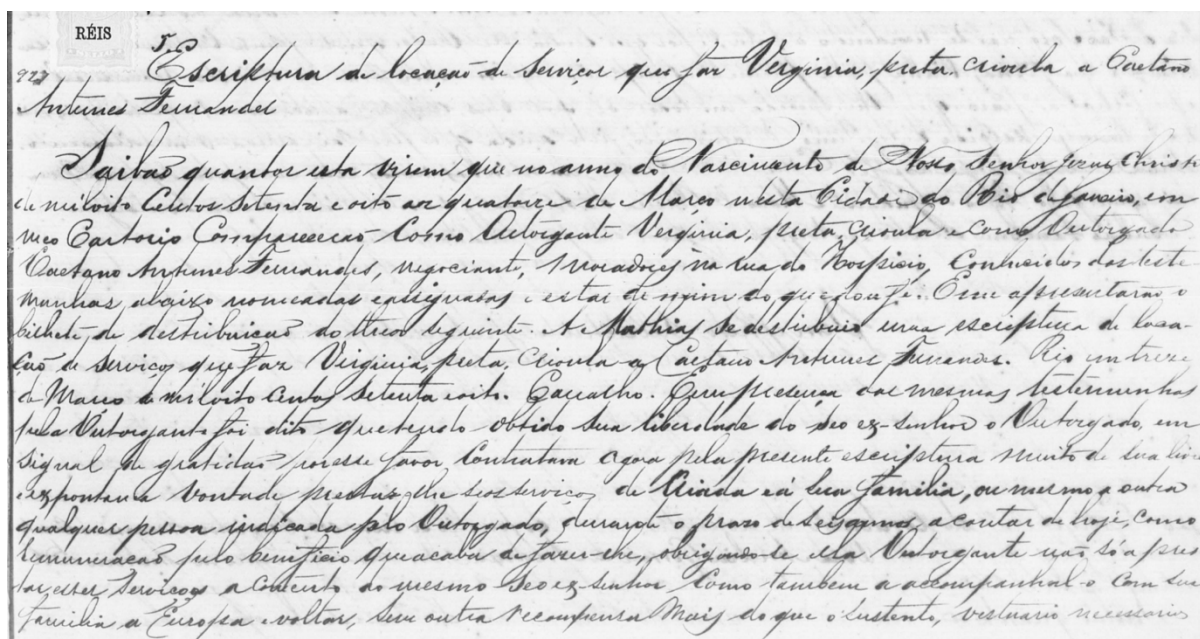 RÉIS
Escriptura de locação de Serviços que faz Verginia, preta, crioula a Caetano
Antunes Fernandes
Saibão quantos esta virem que no anno do Nascimento de Nosso Senhor Jezus Christo
de mil oito Centos Setenta e oito aos quatorze de Março nesta Cidade do Rio de Janeiro, em
meo Cartorio Comparecerão Como Outorgante Verginia, preta, crioula e como Outorgado
Caetano Antunes Fernandes, negociante, moradores na rua do Hospicio, Conhecidos das teste
munhas, abaixo nomeadas e assignadas e estas de mim do que dou fé. E me apresentarão o
bilhete de destribuicão do theor seguinte. A Mathias se destribuio uma escriptura de loca
ção de serviços que faz Virginia, preta, Crioula a Caetano Antunes Fernandes. Rio em treze
de Marco de mil oito centos Setenta e oito. Carvalho. E em presença das mesmas testemunhas
pela Outorgante foi dito que tendo obtido sua liberdade do seo ex-senhor o Outorgado, em
signal de gratidão por esse favor, Contratava agora pela presente escriptura muito de sua livre
e expontanea Vontade prestar-lhe seos serviços de Criada e á sua familia, ou mesmo a outra
qualquer pessoa indicada plo Outorgado, durante o prazo de seis annos, a contar de hoje, como
remuneração pelo beneficio que acaba de fazer-lhe, obrigando-se ella Outorgante não só a pres
tar esses Serviços a Contento do mesmo Seo ex-senhor Como tambem a accompanhal-o Com sua
familia a Europa e voltar, sem outra recompensa Mais do que o sustento, vestuario necessario